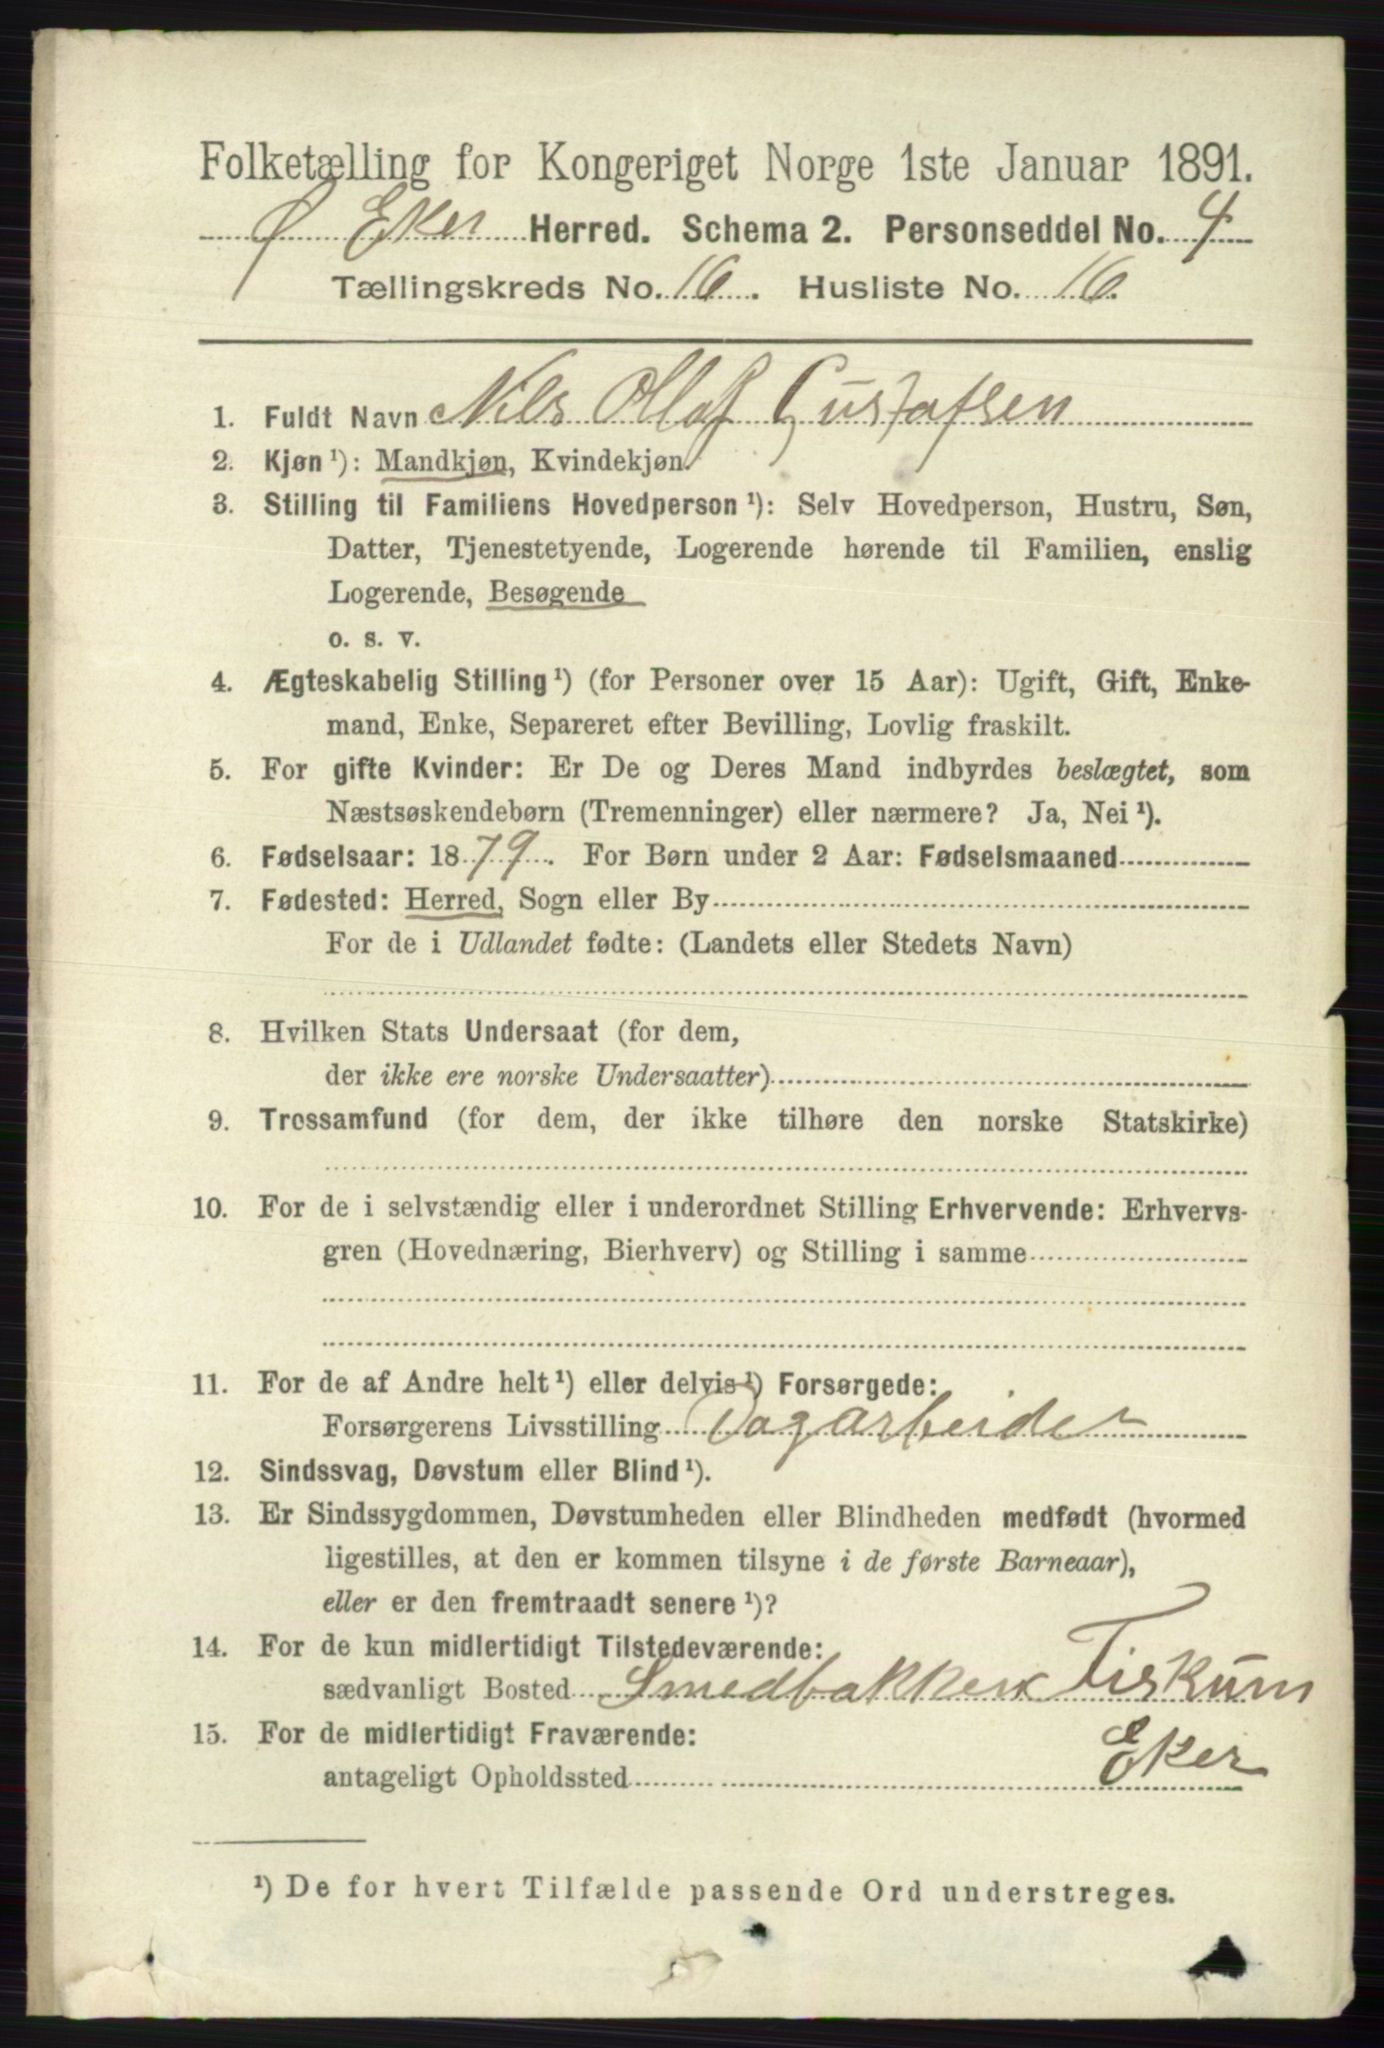 Folketælling for Kongeriget Norge 1ste Januar 1891.
Ø Eker Herred. Schema 2. Personseddel No. 4
Tællingskreds No. 16. Husliste No. 16.
1. Fuldt Navn Nils Olaf Gustafsen
2. Kjøn ¹): Mandkjøn, Kvindekjøn.
3. Stilling til Familiens Hovedperson ¹): Selv Hovedperson, Hustru, Søn,
Datter, Tjenestetyende, Logerende hørende til Familien, enslig
Logerende, Besøgende
o. s. v.
4. Ægteskabelig Stilling ¹) (for Personer over 15 Aar): Ugift, Gift, Enke-
mand, Enke, Separeret efter Bevilling, Lovlig fraskilt.
5. For gifte Kvinder: Er De og Deres Mand indbyrdes beslægtet, som
Næstsøskendebørn (Tremenninger) eller nærmere? Ja, Nei ¹).
6. Fødselsaar: 1879. For Børn under 2 Aar: Fødselsmaaned
7. Fødested: Herred, Sogn eller By
For de i Udlandet fødte: (Landets eller Stedets Navn)
8. Hvilken Stats Undersaat (for dem,
der ikke ere norske Undersaatter)
9. Trossamfund (for dem, der ikke tilhøre den norske Statskirke)
10. For de i selvstændig eller i underordnet Stilling Erhvervende: Erhvervs-
gren (Hovednæring, Bierhverv) og Stilling i samme
11. For de af Andre helt ¹) eller delvis ¹) Forsørgede:
Forsørgerens Livsstilling Dagarbeider
12. Sindssvag, Døvstum eller Blind ¹).
13. Er Sindssygdommen, Døvstumheden eller Blindheden medfødt (hvormed
ligestilles, at den er kommen tilsyne i de første Barneaar),
eller er den fremtraadt senere ¹)?
14. For de kun midlertidigt Tilstedeværende:
sædvanligt Bosted Smedbakken Fiskum
15. For de midlertidigt Fraværende:
Eker
antageligt Opholdssted
¹) De for hvert Tilfælde passende Ord understreges.